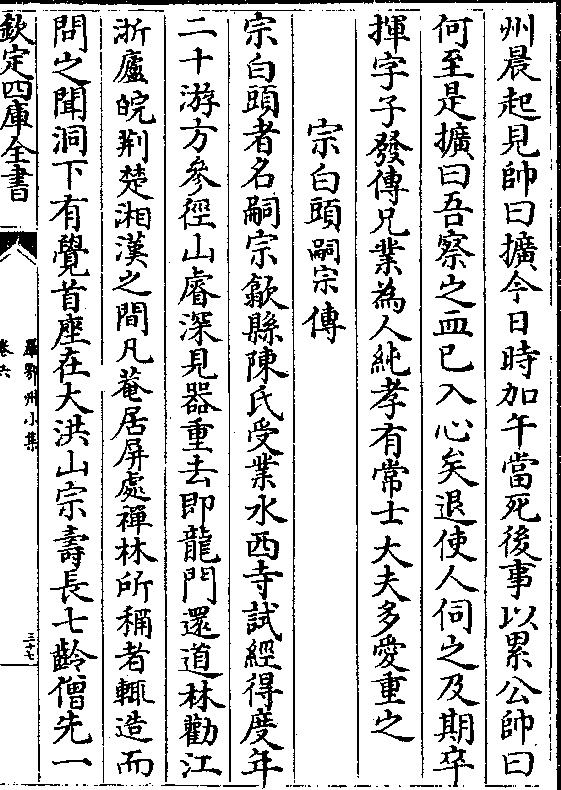 州晨起見帥曰擴今日時加午當死後事以累公帥曰
何至是擴曰吾察之血已入心矣退使人伺之及期卒
揮字子發傳兄業為人純孝有常士大夫多愛重之
宗白頭嗣宗傳
宗白頭者名嗣宗歙縣陳氏受業水西寺試經得度年
二十游方參徑山睿深見器重去即龍門還道林勸江
浙廬皖荆楚湘漢之間凡菴居屏處禪林所稱者輒造而
問之聞洞下有覺首座在大洪山宗壽長七齡僧先一
欽定四庫全書
羅鄂州小集
卷六
三十七